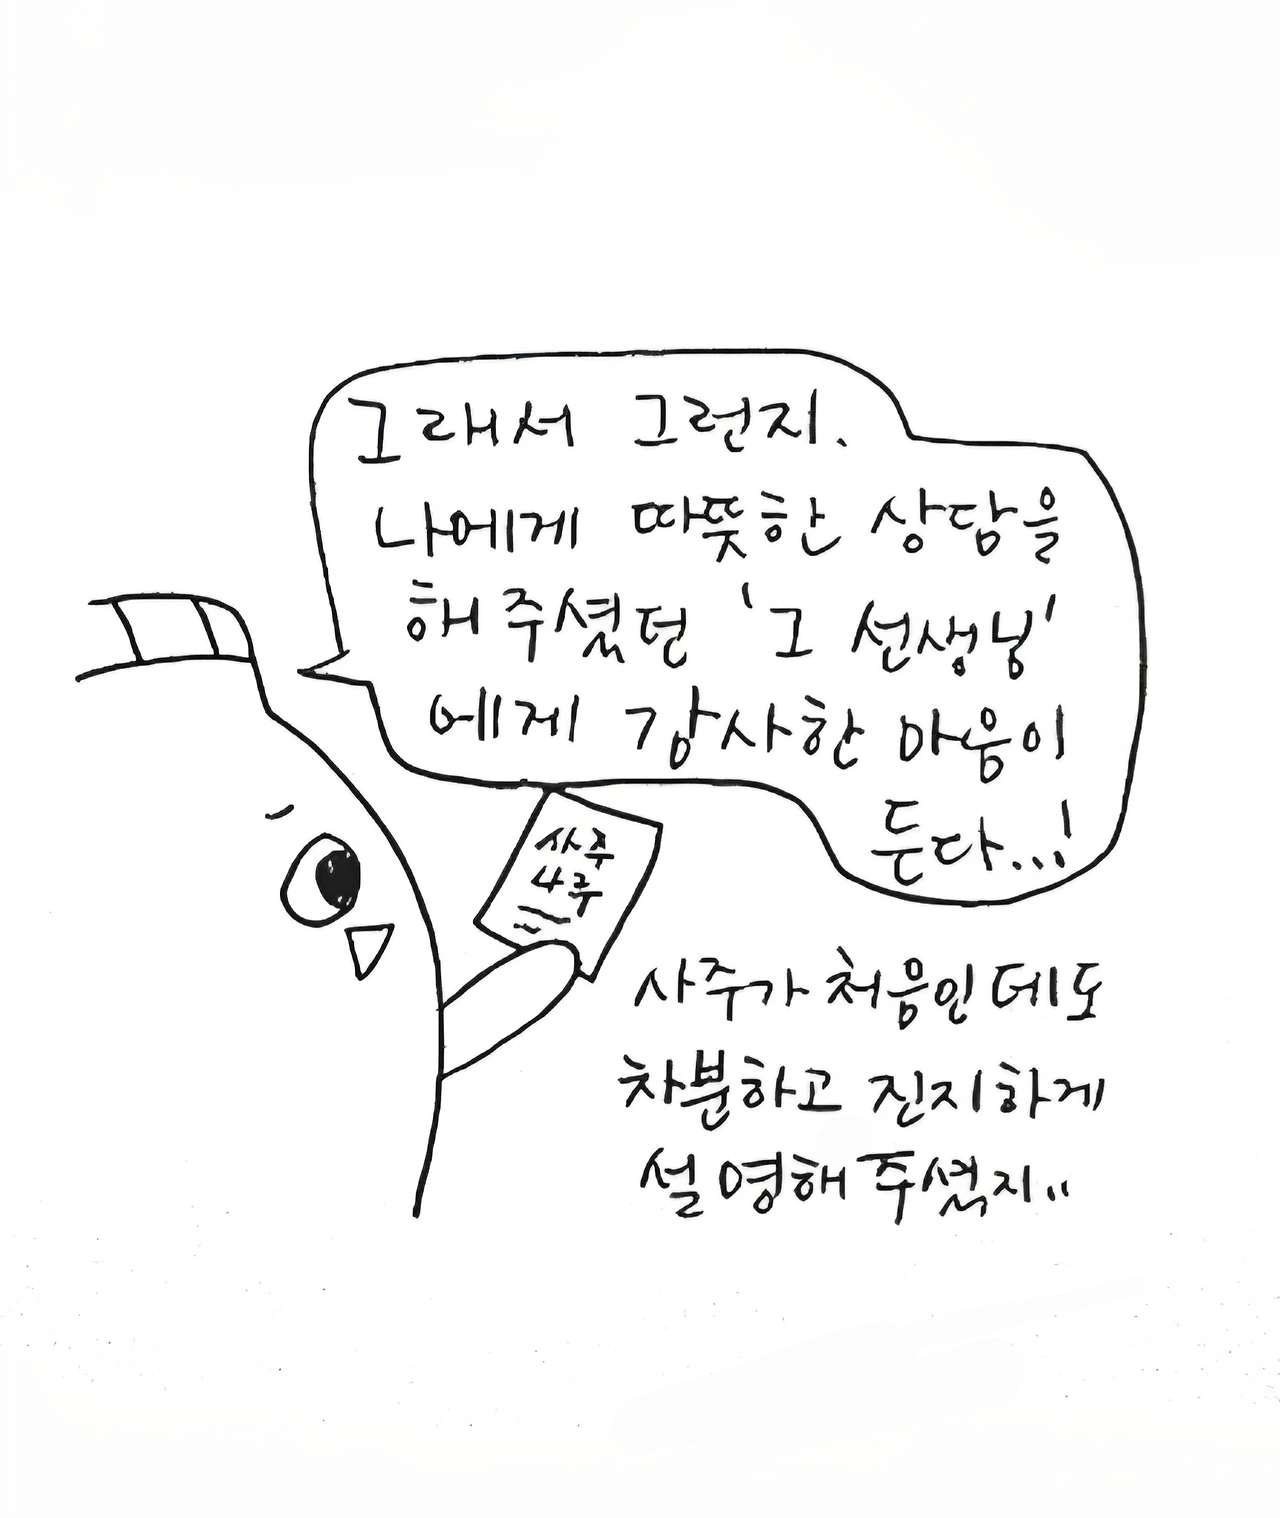 그래서 그런지.
나에게 따뜻한 상담을
해주셨던 '그 선생님'
에게 감사한 마음이
든다...!
사주
나루
사주가 처음인데도
차분하고 진지하게
설명해주셨지..